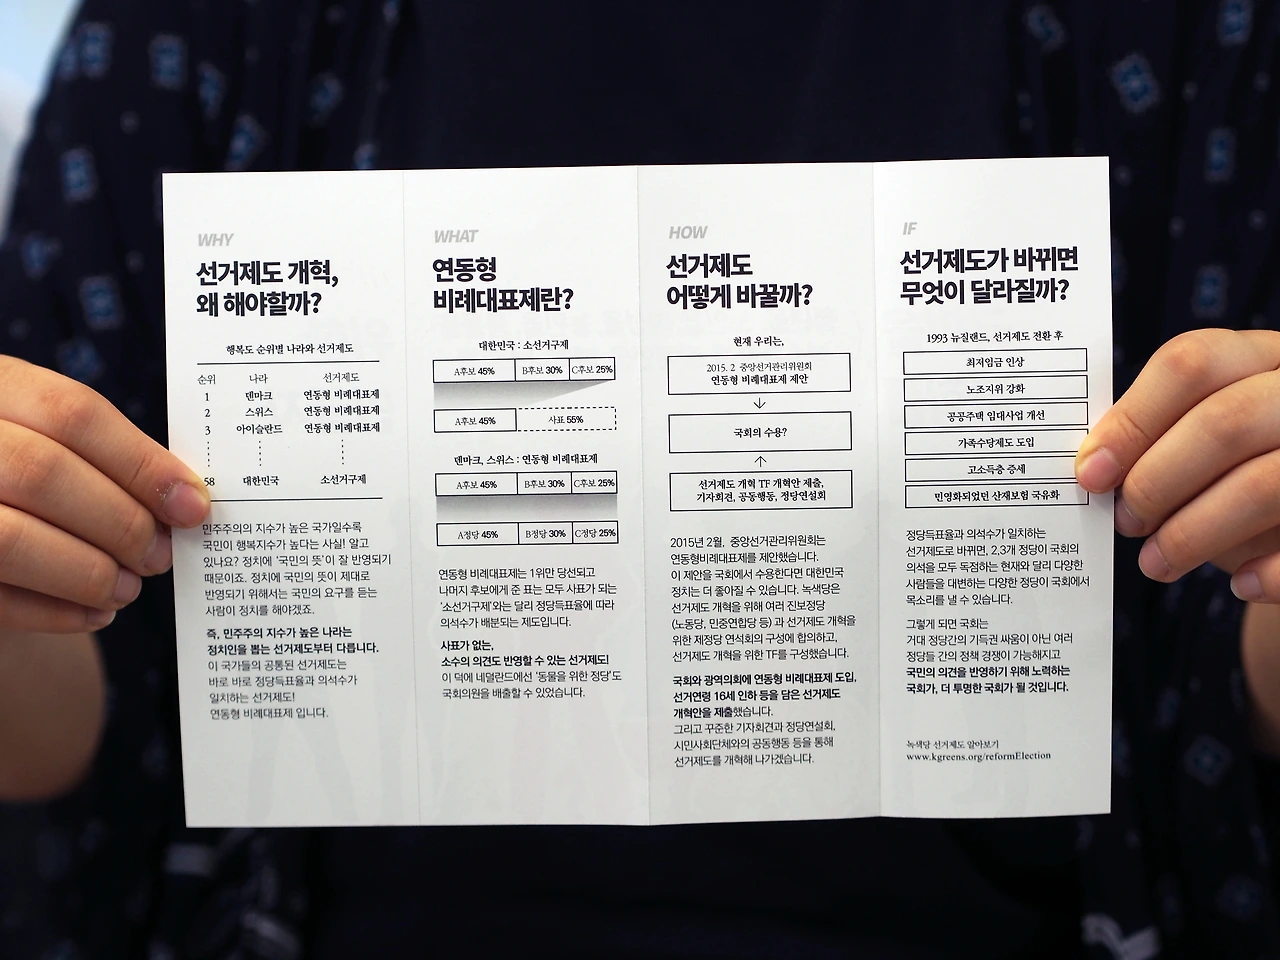 WHY
선거제도 개혁,
왜 해야할까?
행복도 순위별 나라와 선거제도
순위 나라 선거제도
1 덴마크 연동형 비례대표제
2 스위스 연동형 비례대표제
3 아이슬란드 연동형 비례대표제
58 대한민국 소선거구제
민주주의의 지수가 높은 국가일수록
국민이 행복지수가 높다는 사실! 알고
있나요? 정치에 '국민의 뜻'이 잘 반영되기
때문이죠. 정치에 국민의 뜻이 제대로
반영되기 위해서는 국민의 요구를 듣는
사람이 정치를 해야겠죠.
즉, 민주주의 지수가 높은 나라는
정치인을 뽑는 선거제도부터 다릅니다.
이 국가들의 공통된 선거제도는
바로 바로 정당득표율과 의석수가
일치하는 선거제도!
연동형 비례대표제 입니다.
WHAT
연동형
비례대표제란?
대한민국 : 소선거구제
A후보 45% B후보 30% C후보 25%
A후보 45% 사표 55%
덴마크, 스위스 : 연동형 비례대표제
A후보 45% B후보 30% C후보 25%
A정당 45% B정당 30% C정당 25%
연동형 비례대표제는 1위만 당선되고
나머지 후보에게 준 표는 모두 사표가 되는
'소선거구제'와는 달리 정당득표율에 따라
의석수가 배분되는 제도입니다.
사표가 없는,
소수의 의견도 반영할 수 있는 선거제도!
이 덕에 네덜란드에선 '동물을 위한 정당'도
국회의원을 배출할 수 있었습니다.
HOW
선거제도
어떻게 바꿀까?
현재 우리는,
2015. 2 중앙선거관리위원회
연동형 비례대표제 제안
↓
국회의 수용?
↑
선거제도 개혁 TF 개혁안 제출,
기자회견, 공동행동, 정당연설회
2015년 2월, 중앙선거관리위원회는
연동형비례대표제를 제안했습니다.
이 제안을 국회에서 수용한다면 대한민국
정치는 더 좋아질 수 있습니다. 녹색당은
선거제도 개혁을 위해 여러 진보정당
(노동당, 민중연합당 등) 과 선거제도 개혁을
위한 제정당 연석회의 구성에 합의하고,
선거제도 개혁을 위한 TF를 구성했습니다.
국회와 광역의회에 연동형 비례대표제 도입,
선거연령 16세 인하 등을 담은 선거제도
개혁안을 제출했습니다.
그리고 꾸준한 기자회견과 정당연설회,
시민사회단체와의 공동행동 등을 통해
선거제도를 개혁해 나가겠습니다.
IF
선거제도가 바뀌면
무엇이 달라질까?
1993 뉴질랜드, 선거제도 전환 후
최저임금 인상
노조지위 강화
공공주택 임대사업 개선
가족수당제도 도입
고소득층 증세
민영화되었던 산재보험 국유화
정당득표율과 의석수가 일치하는
선거제도로 바뀌면, 2,3개 정당이 국회의
의석을 모두 독점하는 현재와 달리 다양한
사람들을 대변하는 다양한 정당이 국회에서
목소리를 낼 수 있습니다.
그렇게 되면 국회는
거대 정당간의 기득권 싸움이 아닌 여러
정당들 간의 정책 경쟁이 가능해지고
국민의 의견을 반영하기 위해 노력하는
국회가, 더 투명한 국회가 될 것입니다.
녹색당 선거제도 알아보기
www.kgreens.org/reformElection